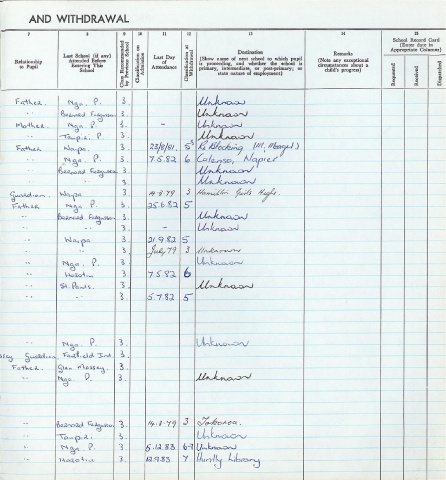 AND WITHDRAWAL
7 8 9 10 11 12 13 14 15
Relationship to Pupil
Last School (if any) Attended Before Entering This School
Class Recommended by Previous School
Classification on Admission
Last Day of Attendance
Classification at Withdrawal
Destination
(Show name of next school to which pupil is proceeding, and whether the school is primary, intermediate, or post-primary, or state nature of employment)
Remarks
(Note any exceptional circumstances about a child's progress)
School Record Card
(Enter date in Appropriate Columns)
Requested
Received
Despatched
Father. Nga. P. 3. Unknown
" Bernard Ferguson 3. Unknown
Mother. Nga. P. 3. - Unknown
" Taupiri P. 3. Unknown
Father Waipa 3. 28/8/81. 5
" Nga. P. 3. 7.5.82 6 Colenso, Napier
" Bernard Ferguson 3. Unknown
" " 3. Unknown
Guardian. Waipa 3. 14.9.79 3 Hamilton Girls High.
Father Nga P. 3. 25.6.82 5
" Bernard Ferguson 3. Unknown
" " 3. - Unknown
" Waipa 3. 21.9.82 5
" " 3. July 79 3 Unknown
" Nga. P. 3. Unknown
" Horotiu 3. 7.5.82 6
" St. Pauls. 3. Unknown
" " 3. 5.7.82 5
" Nga. P. 3. Unknown
Guardian Fairfield Int. 3.
Father. Glen Massey. 3.
" Nga. P. 3. Unknown
" Bernard Ferguson. 3. 14.8.79 3 Tokoroa.
" Taupiri. 3. Unknown
" Nga. P. 3. 5.12.83 6-7 Unknown
" Horotiu 3. 12.9.83 7 Huntly Library